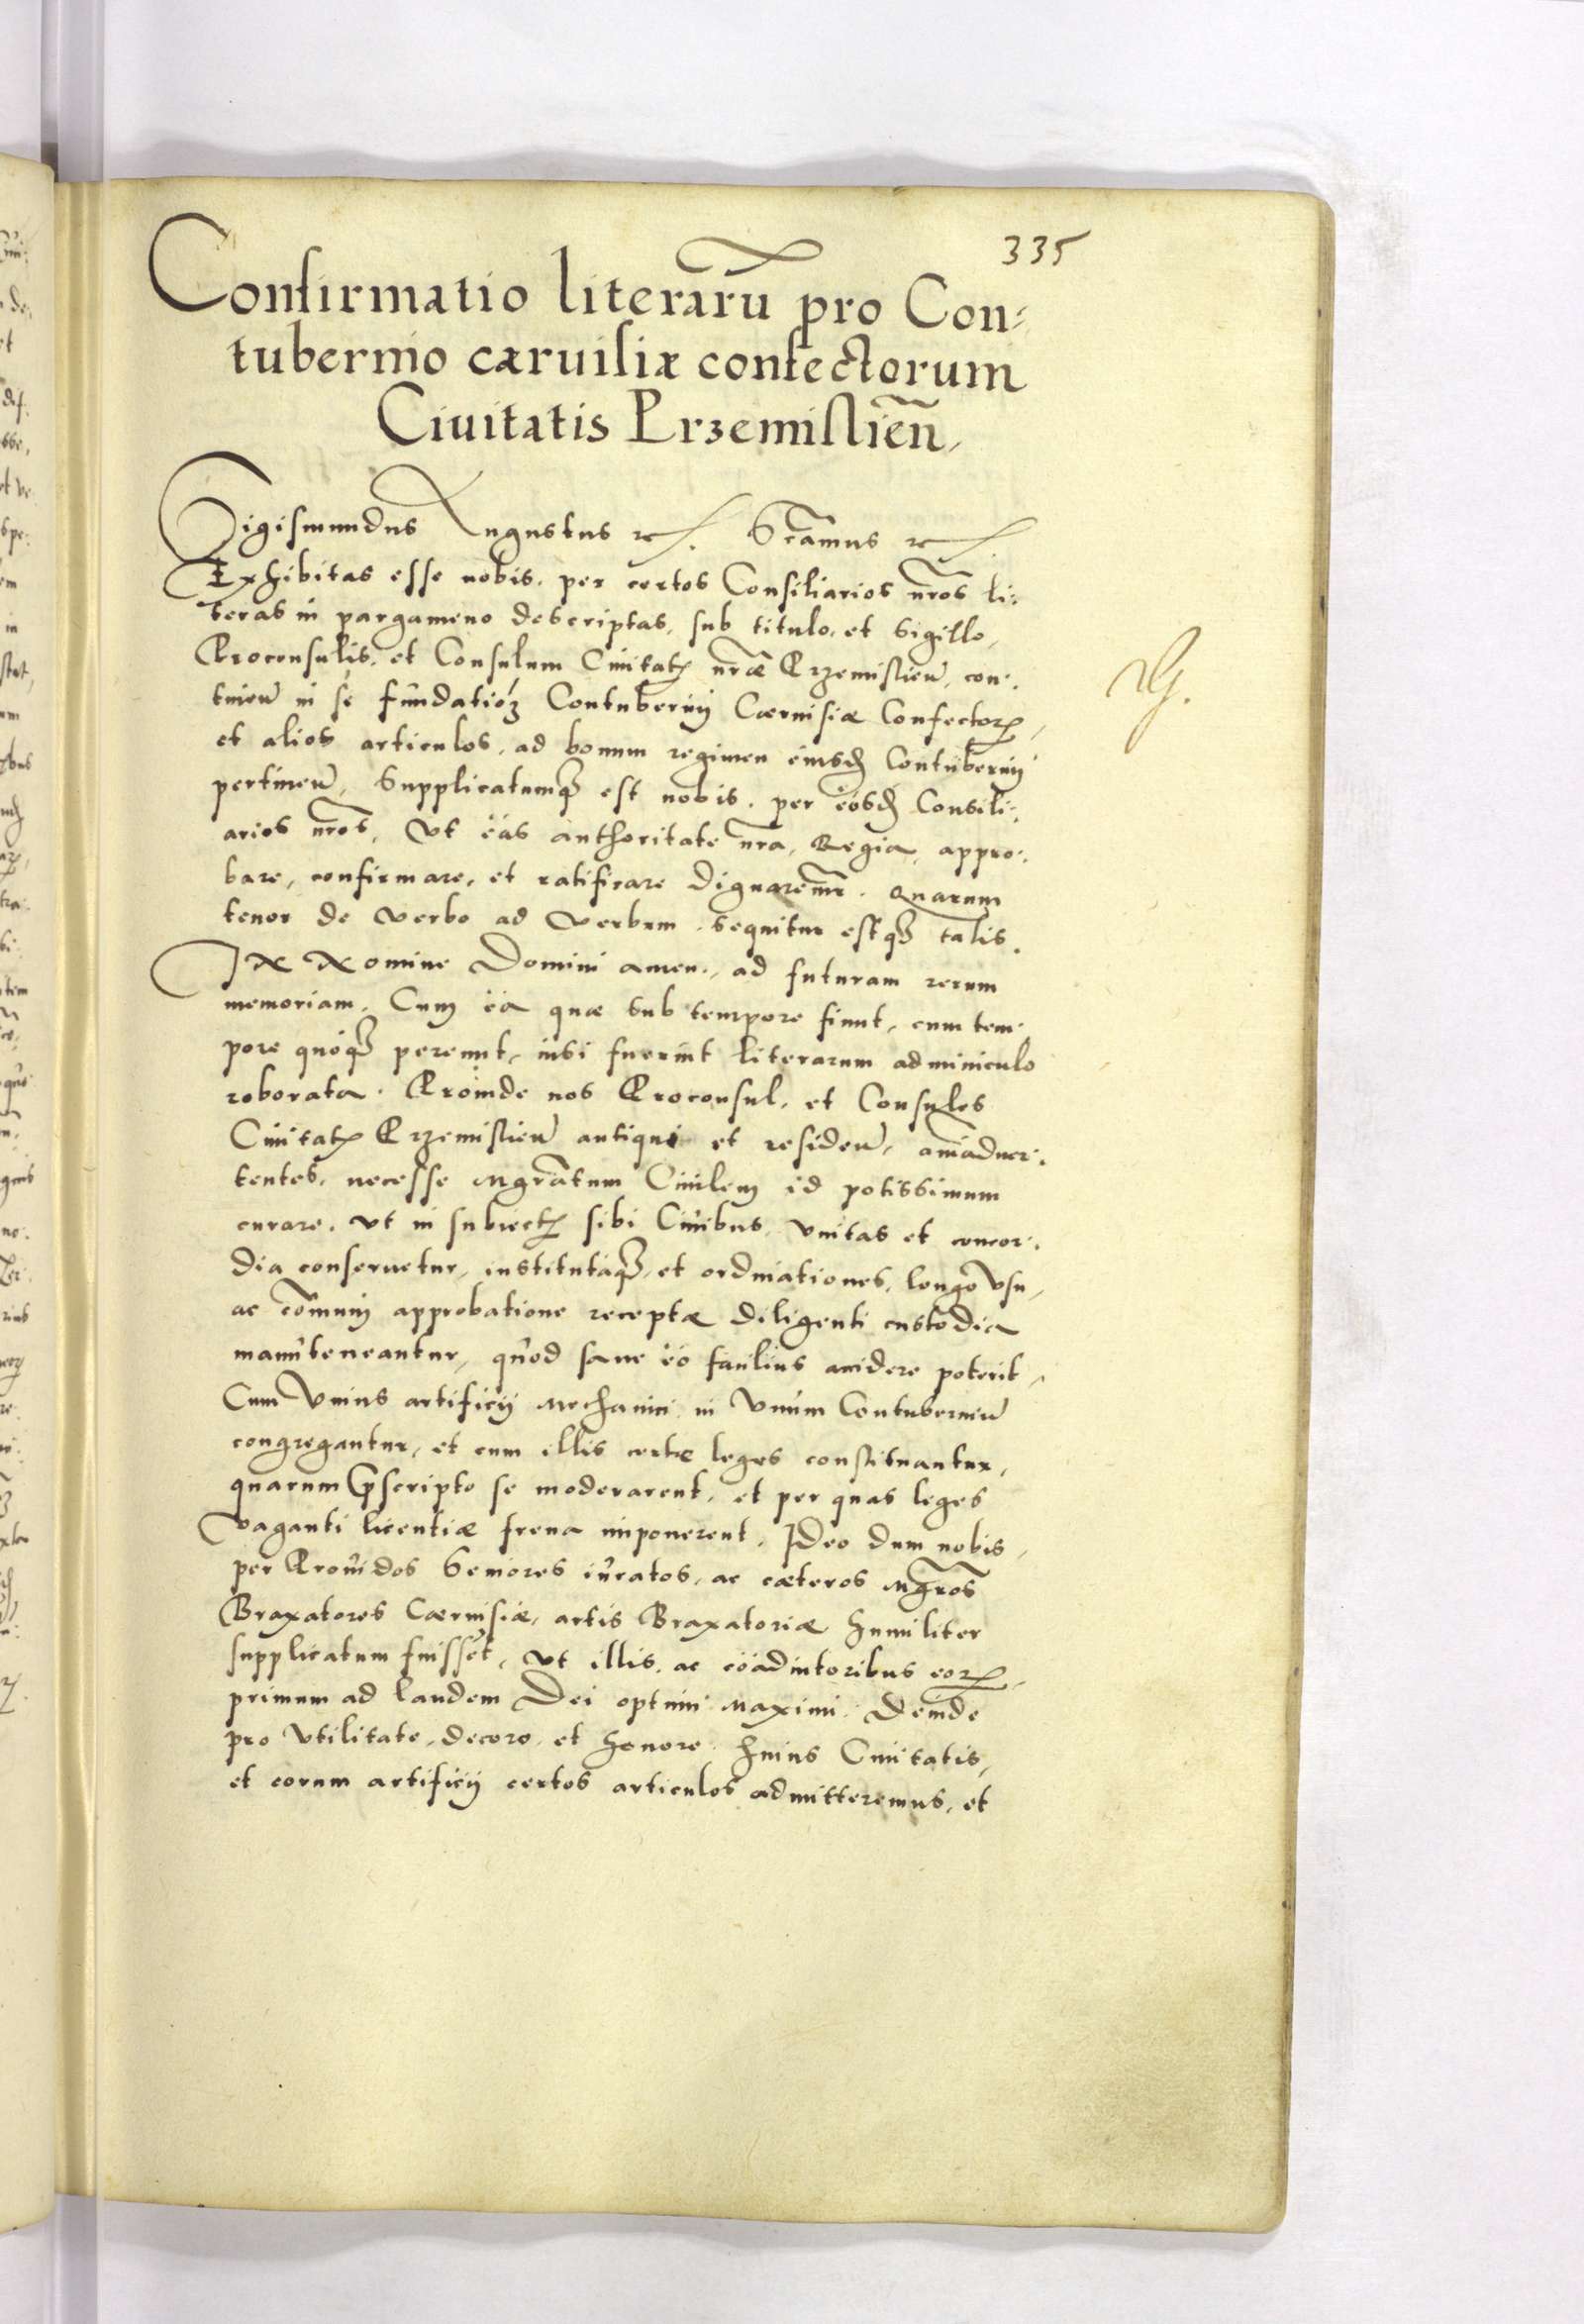 335
Confirmatio literarũ pro Con:
tubernio cæruisiæ confectorum
Ciuitatis Przemislien̄,
Sigismundus Augustus etc. Scam̃us etc.
Exhibitas esse nobis, per certos Consiliarios nr̃os li:
teras in pargameno descriptas, sub titulo, et sigillo,
Proconsulis, et Consulum Ciuitatꝭ nræ̃ Przemislien̄, con:
tinen̄ in se fundatioȝ Contubernij Cæruisiæ Confectorꝝ,
et alios articulos, ad bonum regimen eiusdꝫ Contubernij
pertinen̄, Supplicatumqꝫ est nobis, per eosdꝫ Consili:
arios nr̃os, Vt eas authoritate nr̃a, Regia, appro:
bare, confirmare, et ratificare dignarem̃r. Quarum
tenor de verbo ad verbum sequitur estqꝫ talis.
IN Nomine Domini amen, ad futuram rerum
memoriam, Cum ea quæ sub tempore fiunt, cum tem:
pore quoqꝫ pereunt, nisi fuerint literarum adminiculo
roborata. Proinde nos Proconsul, et Consules
Ciuitatꝭ Przemislien̄ antiqui et residen̄, aniaduer:
tentes, necesse Mgrãtum Ciuilem id potissimum
curare, vt in subiectꝭ sibi Ciuibus, vnitas et concor:
dia conseruetur, institutaqꝫ, et ordinationes, longo vsu,
ac com̃uni approbatione receptæ diligenti custodia
manuteneantur, quod sane eo facilius accidere poterit,
Cum vnius artificij Mechanici in vnum Contuberniũ
congregantur, et cum illis certæ leges constituantur,
quarum p̃scripto se moderarent, et per quas leges
vaganti licentiæ frena imponerent. Ideo dum nobis,
per Prouidos Seniores iuratos, ac cæteros Mgr̃os
Braxatores Cæruisiæ, artis Braxatoriæ humiliter
supplicatum fuisset, vt illis, ac coadiutoribus eorꝝ,
primum ad laudem Dei optimi Maximi. Deinde
pro vtilitate, decore, et honore huius Ciuitatis,
et eorum artificij certos articulos admitteremus, et